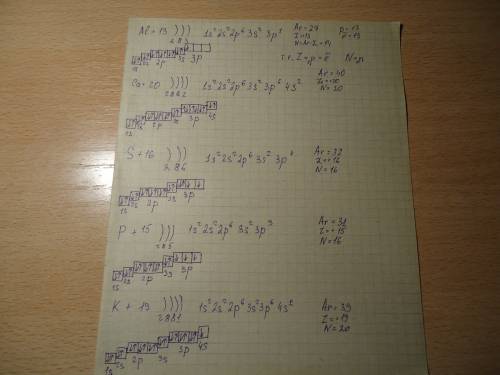 Al + 13 ) ) ) 1s² 2s² 2p⁶ 3s² 3p¹ Ar = 27 p = 13
2 8 3 Z = 13
N = Ar - Z =
1s 2s 2p 3s 3p т.к. Z = p = e̅
Ca + 20 ) ) ) ) 1s² 2s² 2p⁶ 3s² 3p⁶ 4s² Ar = 40
2 8 8 2 Z = +20
N = 20
1s 2s 2p 3s 3p 4s
S + 16 ) ) ) 1s² 2s² 2p⁶ 3s² 3p⁴ Ar = 32
2 8 6 Z = +16
N = 16
1s 2s 2p 3s 3p
P + 15 ) ) ) 1s² 2s² 2p⁶ 3s² 3p³ Ar = 31
2 8 5 Z = +15
N = 16
1s 2s 2p 3s 3p
K + 19 ) ) ) ) 1s² 2s² 2p⁶ 3s² 3p⁶ Ar = 39
2 8 8 1 Z = +19
N = 20
1s 2s 2p 3s 3p 4s